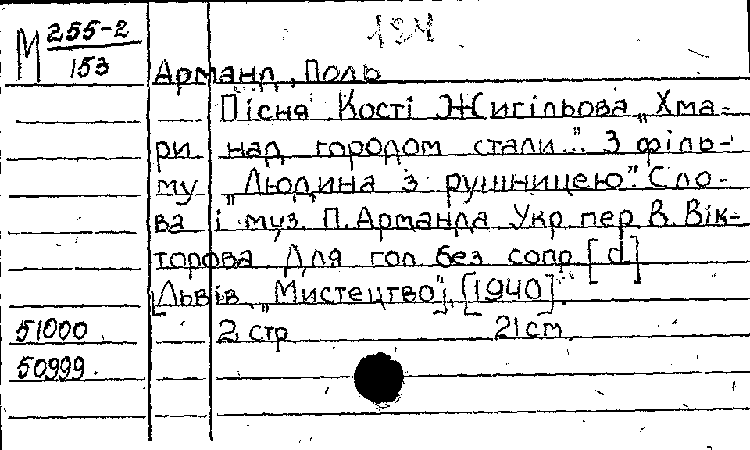 М 255-2
153
Арманд, Поль
Пісня Кості Жигільова „Хма-
ри над городом стали...". З філь-
му „Людина з рушницею". Сло-
ва і муз. П. Арманда Укр пер В. Вік-
торова Для гол. без сопр. [d]
[Львів, „Мистецтво"], [1940].
51000
2 стр 21 cm
50999.